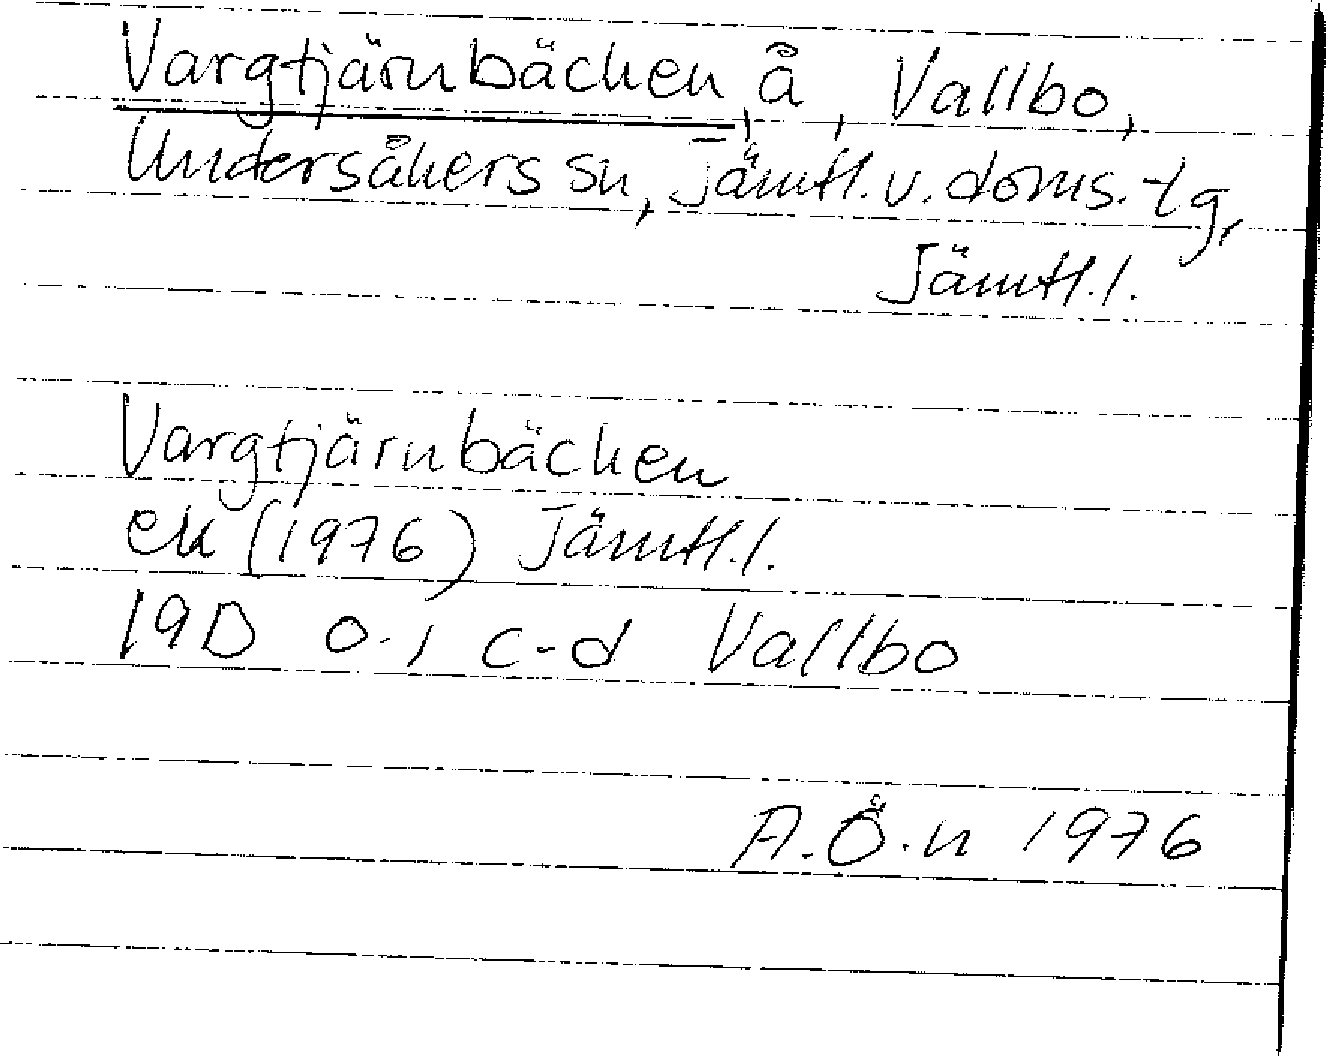 Vargtjärnbäcken, å, Vallbo,
Undersåkers sn, Jämtl. v. doms. tg,
Jämtl. l.
Vargtjärnbäcken
ek (1976) Jämtl. l.
19D 0-1 c-d Vallbo
A. Ö. n 1976